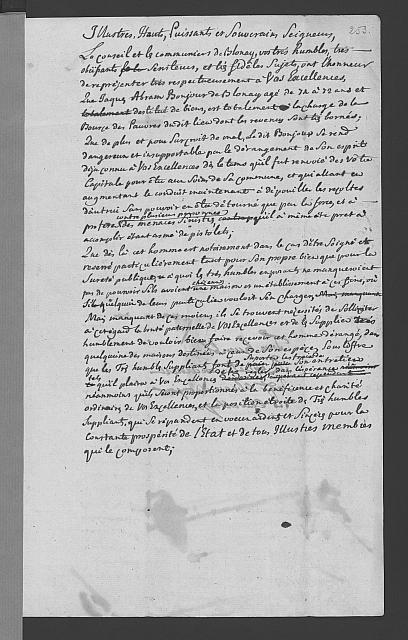 253.
Illustres, Hauts, Puissants et Souverains Seigneurs,
Le Conseil et les communiers de Blonay, vos très humbles, très
obeïssants Serviteurs, et très fidèles Sujets, ont l'honneur
de représenter très respectueusement à Vos Excellences,
Que Jaques Abram Bonjour de Blonay agé de 24 à 22 ans et
totalement destitué de biens, est totalement à la charge de la
Bourse des Pauvres dudit lieu dont les revenus sont très bornés.
Que de plus et pour surcroit de mal, Le dit Bonjour se rend
dangereux et insupportable par le dérangement de son esprit
déja connu à Vos Excellences dès le tems qu'il fut renvoié de Votre
Capitale pour être aux Soins de Sa commune, et qui allant en
augmentant le conduit maintenant à dépouiller les récoltes
d'autrui Sans pouvoir en être détourné que par la force, et à
contre plusieurs personnes
menaces Sinistres qu'il a même été pret à
accomplir étant armé de pistolets;
Que dès là cet homme est notoirement dans le cas d'être Soigné et
resserré particulièrement tant pour son propre bien que pour la
Sureté publique, à quoi les très humbles exposants ne manqueroient
pas de pourvoir S'ils avoient une maison et un établissement à ces fins, où
Si quelqu'un de leurs particuliers vouloit s'en charger,
Mais manquant de ces moiens, ils se trouvent nécessités de Solliciter
à cet égard la bonté paternelle de Vos Excellences et de les Supplier très
humblement de vouloir bien faire recevoir cet homme dérangé, dans
quelqu'une des maisons destinées à ceux de Son espèce, Sous l'offre
que Les très humbles Suppliants font de pour son entretien
tel qu'il plaira à Vos Excellences
néanmoins qu'ils Soient proportionnés à la bénéficence et charité
ordinaire de Vos Excellences, et la position étroite des Très humbles
Suppliants, qui Se répandent en voeux ardents et Sincères pour la
Constante prospérité de l'Etat et de tous Illustres membres
qui le composent;